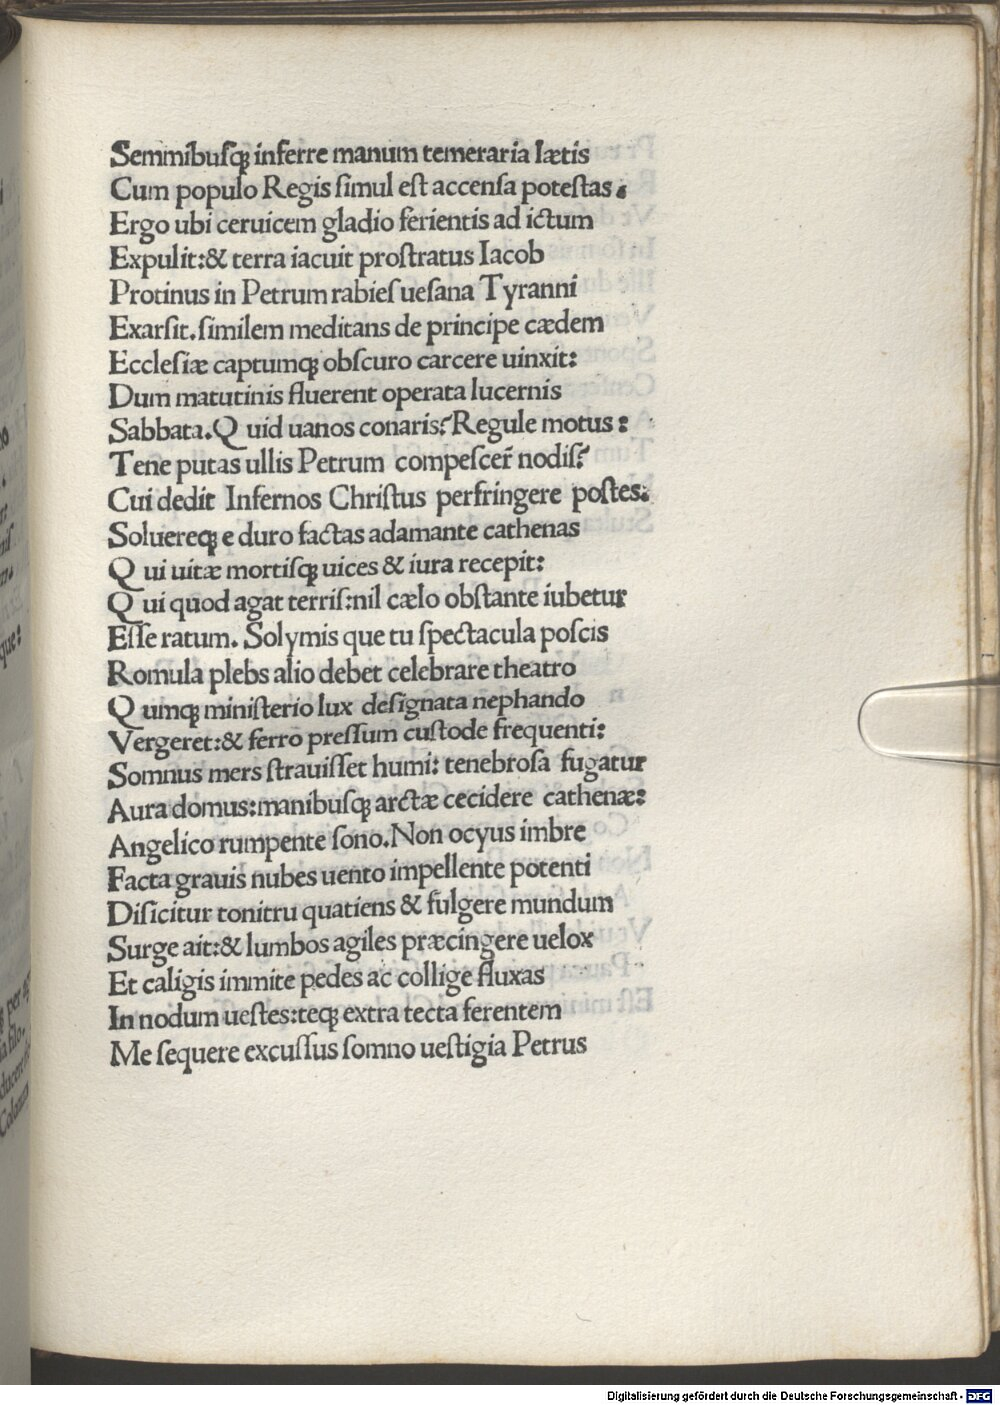 Semmibuſqꝫ inferre manum temeraria lætis
Cum populo Regis ſimul eſt accenſa poteſtas.
Ergo ubi ceruicem gladio ferientis ad ictum
Expulit:& terra iacuit proſtratus Iacob
Protinus in Petrum rabieſ ueſana Tyranni
Exarſit.ſimilem meditans de principe cædem
Eccleſiæ captumqꝫ obſcuro carcere uinxit:
Dum matutinis fluerent operata lucernis
Sabbata.Q uid uanos conaris?Regule motus:
Tene putas ullis Petrum compeſcer̄ nodiſ?
Cui dedit Infernos Chriſtus perfringere poſtes:
Soluereqꝫ e duro factas adamante cathenas
Q ui uitæ mortiſqꝫ uices & iura recepit:
Q ui quod agat terriſ:nil cælo obſtante iubetur
Eſſe ratum. Solymis que tu ſpectacula poſcis
Romula plebs alio debet celebrare theatro
Q umqꝫ miniſterio lux deſignata nephando
Vergeret:& ferro preſſum cuſtode frequenti:
Somnus mers ſtrauiſſet humi: tenebroſa fugatur
Aura domus:manibuſqꝫ arctæ cecidere cathenæ:
Angelico rumpente ſono.Non ocyus imbre
Facta grauis nubes uento impellente potenti
Diſicitur tonitru quatiens & fulgere mundum
Surge ait:& lumbos agiles præcingere uelox
Et caligis immite pedes ac collige fluxas
In nodum ueſtes:teqꝫ extra tecta ferentem
Me ſequere excuſſus ſomno ueſtigia Petrus
Digitalisierung gefördert durch die Deutsche Forschungsgemeinschaft - DFG